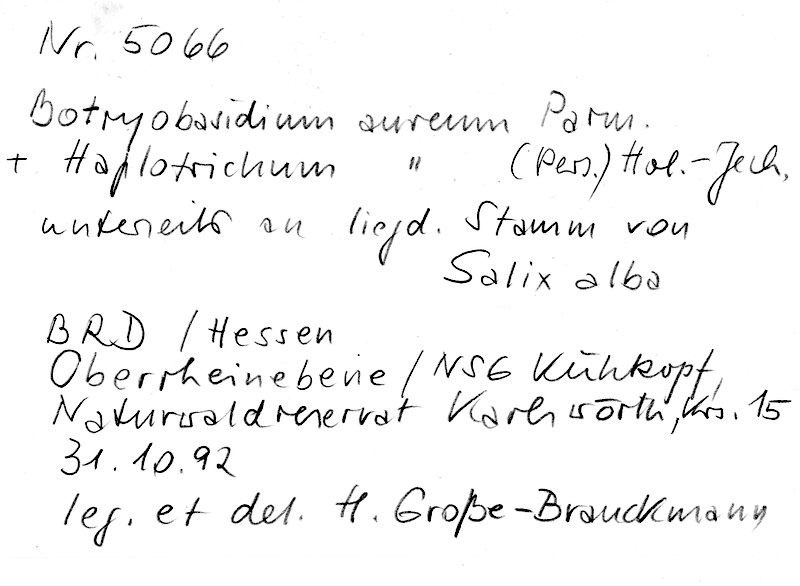 Nr. 5066
Botryobasidium aureum Parm.
+ Haplotrichum " (Pers.) Hol.-Jech,
unterseits an liegd. Stamm von
Salix alba
BRD / Hessen
Oberrheinebene / NSG Kühkopf,
Naturwaldreservat Karlswörth, Krs. 15
31.10.92
leg. et det. H. Große-Brauckmann